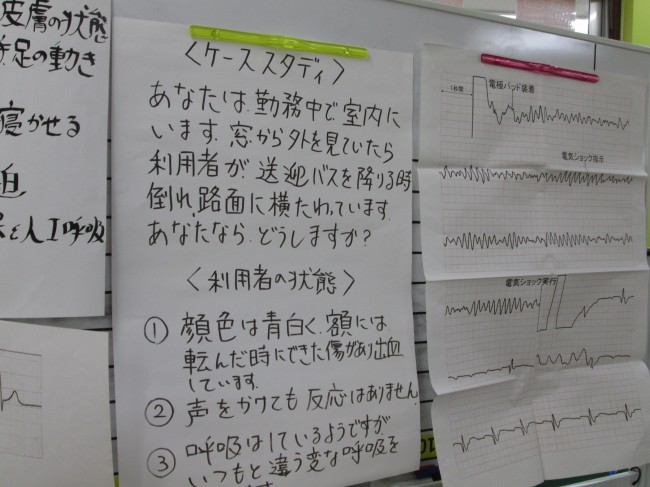 皮膚の状態
足の動き
寝かせる
迫
人工呼吸
〈ケーススタディ〉
あなたは、勤務中で室内に
います。窓から外を見ていたら
利用者が、送迎バスを降りる時
倒れ、路面に横たわっています。
あなたなら、どうしますか?
〈利用者の状態〉
① 顔色は青白く、額には
転んだ時にできた傷があり出血
しています。
② 声をかけても反応はありません
③ 呼吸はしているようですが
いつもと違う変な呼吸を
1秒間
電極パッド装着
電気ショック指示
電気ショック実行